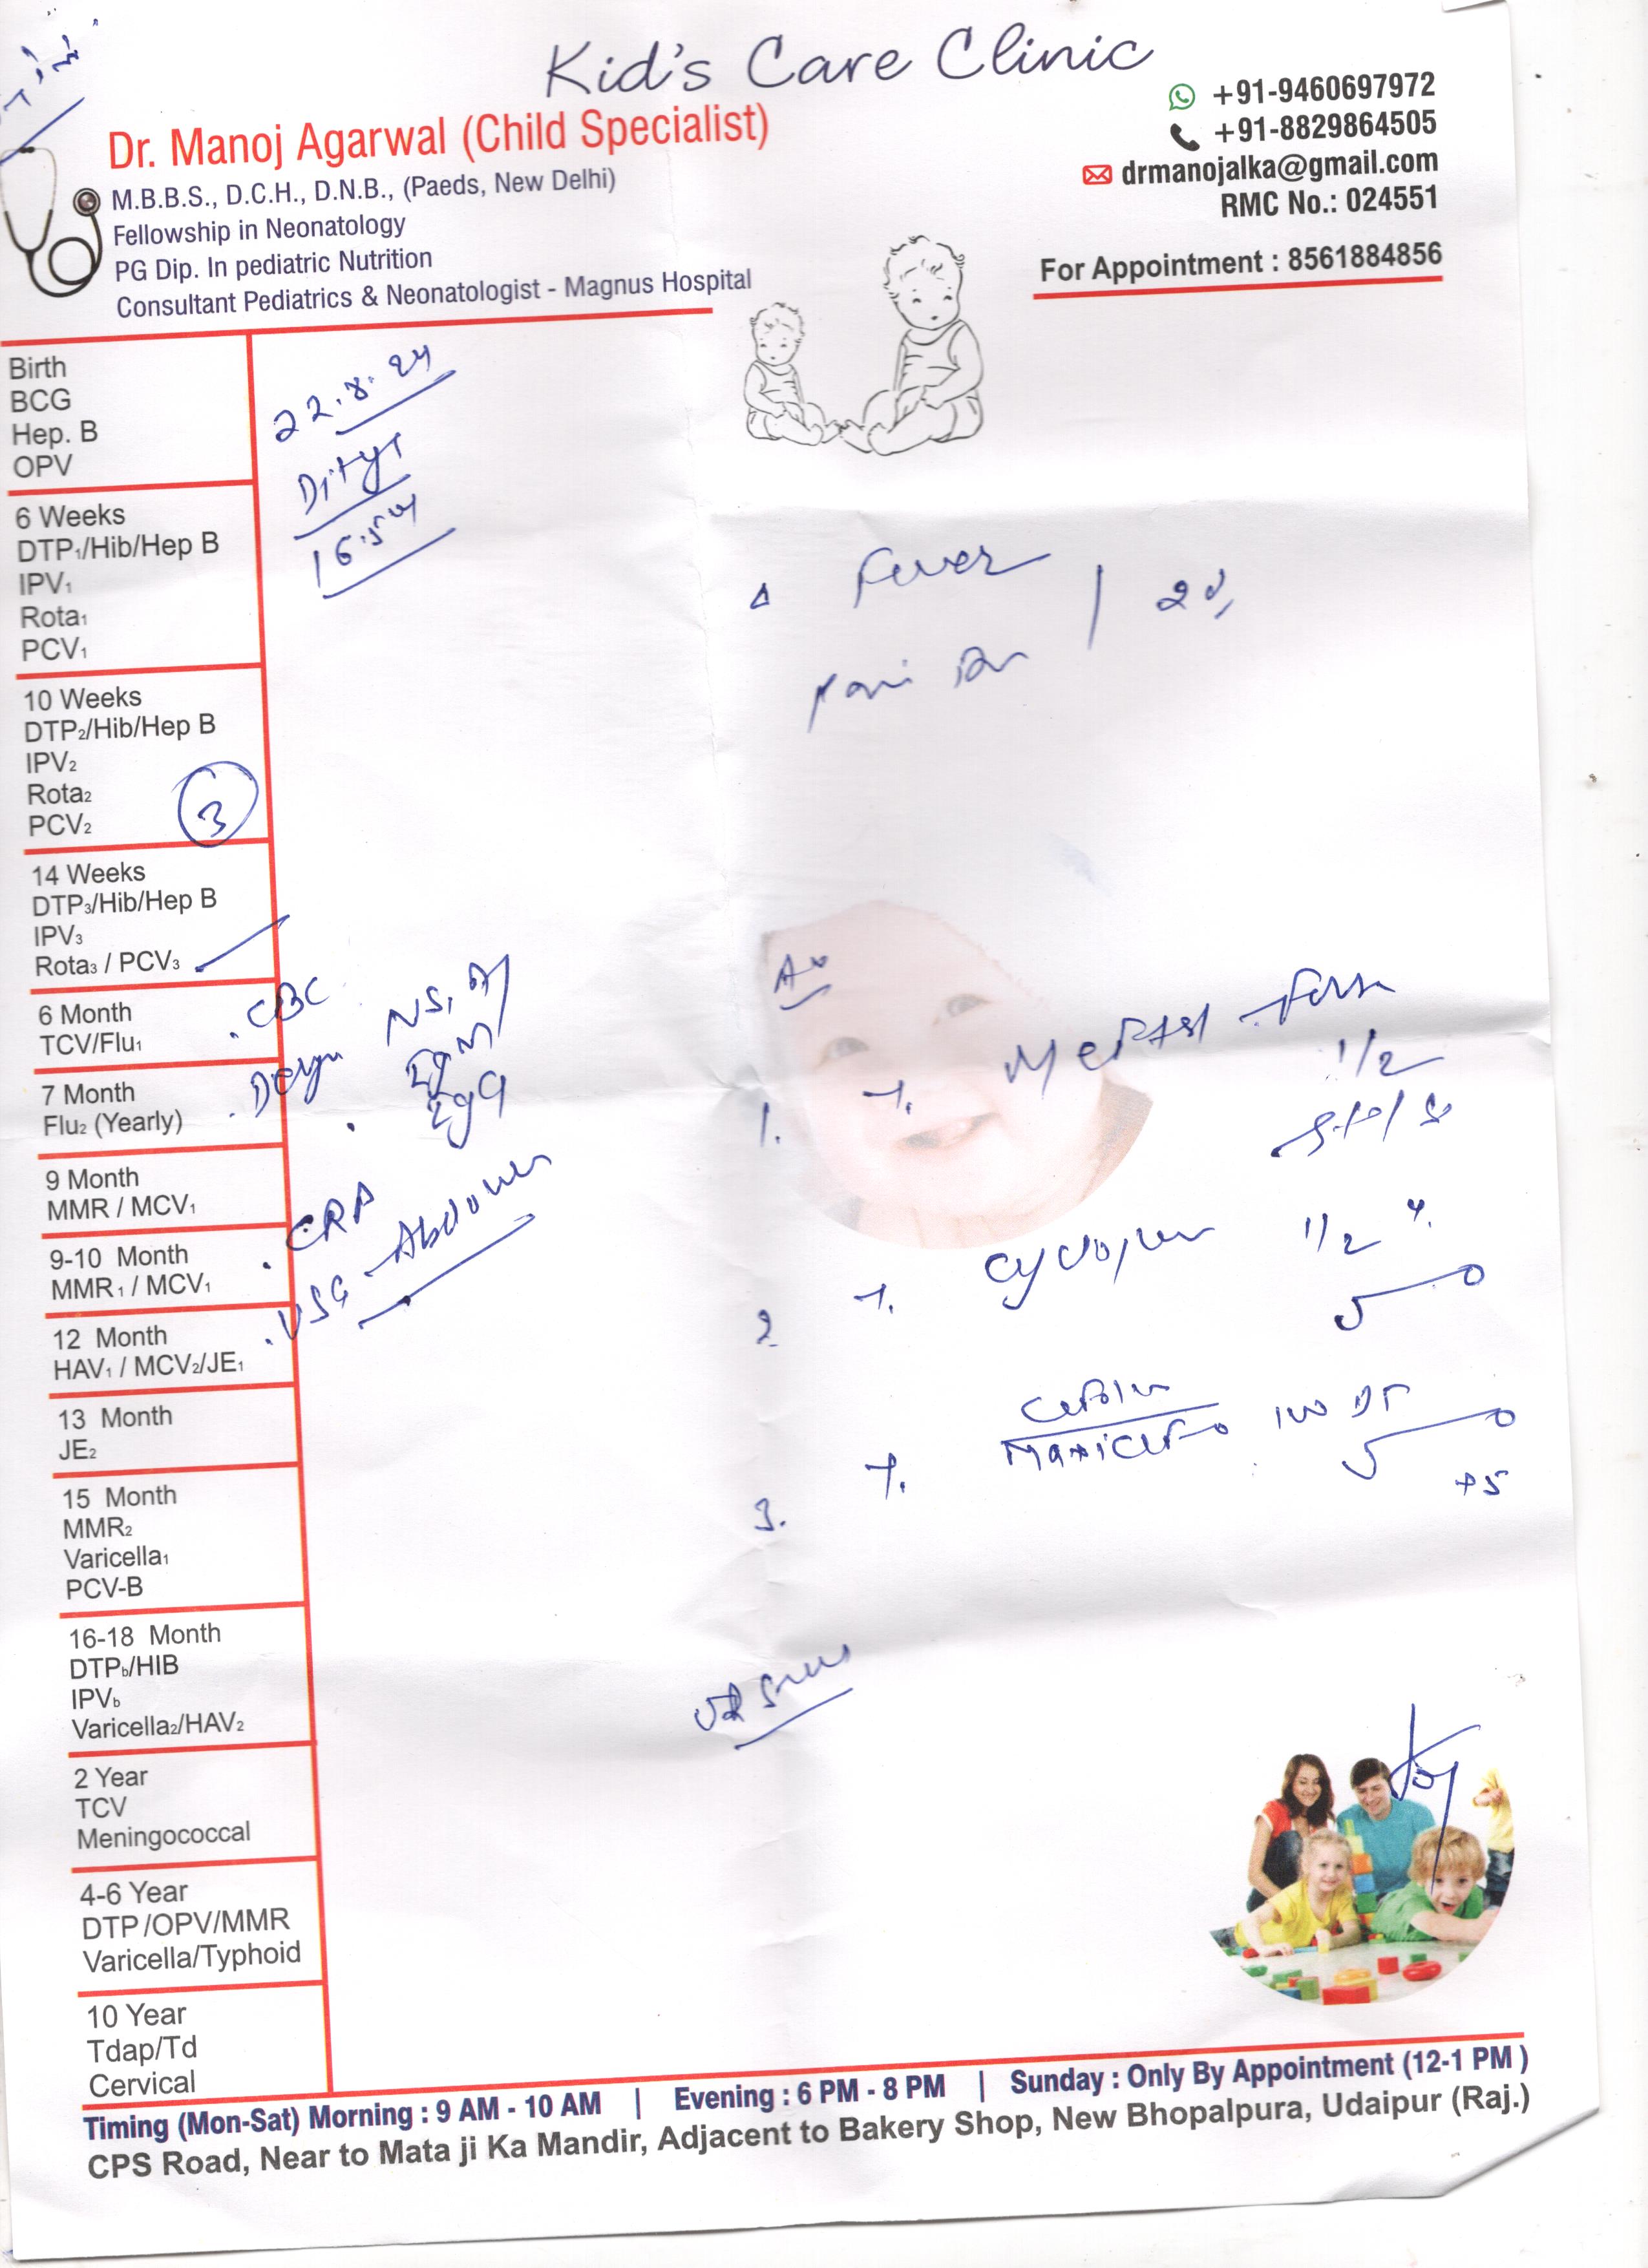 Kid's Care Clinic
Dr. Manoj Agarwal (Child Specialist)
M.B.B.S., D.C.H., D.N.B., (Paeds, New Delhi)
Fellowship in Neonatology
PG Dip. In pediatric Nutrition
Consultant Pediatrics & Neonatologist - Magnus Hospital
+91-9460697972
+91-8829864505
drmanojalka@gmail.com
RMC No.: 024551
For Appointment : 8561884856
Birth
BCG
Hep. B
OPV
6 Weeks
DTP₁/Hib/Hep B
IPV₁
Rota₁
PCV₁
10 Weeks
DTP₂/Hib/Hep B
IPV₂
Rota₂
PCV₂
3
14 Weeks
DTP₃/Hib/Hep B
IPV₃
Rota₃ / PCV₃
6 Month
TCV/Flu₁
7 Month
Flu₂ (Yearly)
9 Month
MMR / MCV₁
9-10 Month
MMR₁ / MCV₁
12 Month
HAV₁ / MCV₂/JE₁
13 Month
JE₂
15 Month
MMR₂
Varicella₁
PCV-B
16-18 Month
DTPb/HIB
IPVb
Varicella₂/HAV₂
2 Year
TCV
Meningococcal
4-6 Year
DTP/OPV/MMR
Varicella/Typhoid
10 Year
Tdap/Td
Cervical
22.8.24
Fever
. CBC
IgM
IgG
. USG - Abdomen
1.
1/2
2. 1/2
3. 100 DT
Timing (Mon-Sat) Morning : 9 AM - 10 AM | Evening : 6 PM - 8 PM | Sunday : Only By Appointment (12-1 PM )
CPS Road, Near to Mata ji Ka Mandir, Adjacent to Bakery Shop, New Bhopalpura, Udaipur (Raj.)